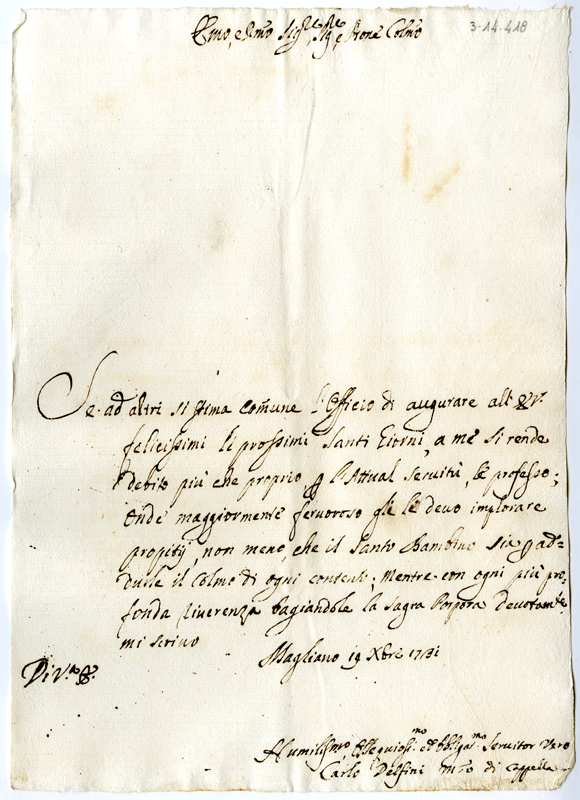 Emo, e Rmo Sigre Sig, e Prone Colmo
3-14-418
Se ad altri si stima comune l'Officio di augurare all' E. V.
felicissimi li prossimi Santi Giorni, a me si rende
debito più che proprio p l'Attual Servitù, le professo;
Onde maggiormente fervoroso gle le devo implorare
propitij non meno, che il Santo Bambino sia p ad=
durle il Colmo di ogni contento; Mentre con ogni più pro,
fonda riverenza bagiandole la Sagra Porpora devotamte
mi scrivo
Magliano 19 Xbre 1731
Di V.ra E.
Humilissmo Ossequiosi.mo ed Obbligas.mo Servitor Vero
Carlo Delfini mro di Cappella